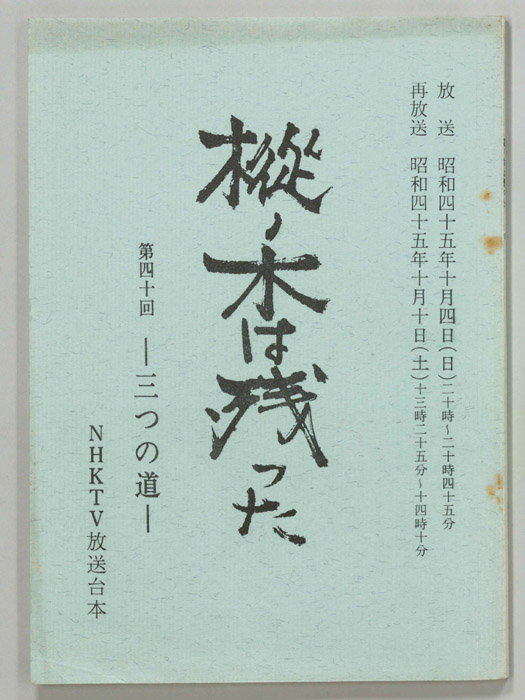 放送 昭和四十五年十月四日(日)二十時~二十時四十五分
再放送 昭和四十五年十月十日(土)十三時二十五分~十四時十分
樅ノ木は残った
第四十回 ―三つの道―
NHKTV放送台本